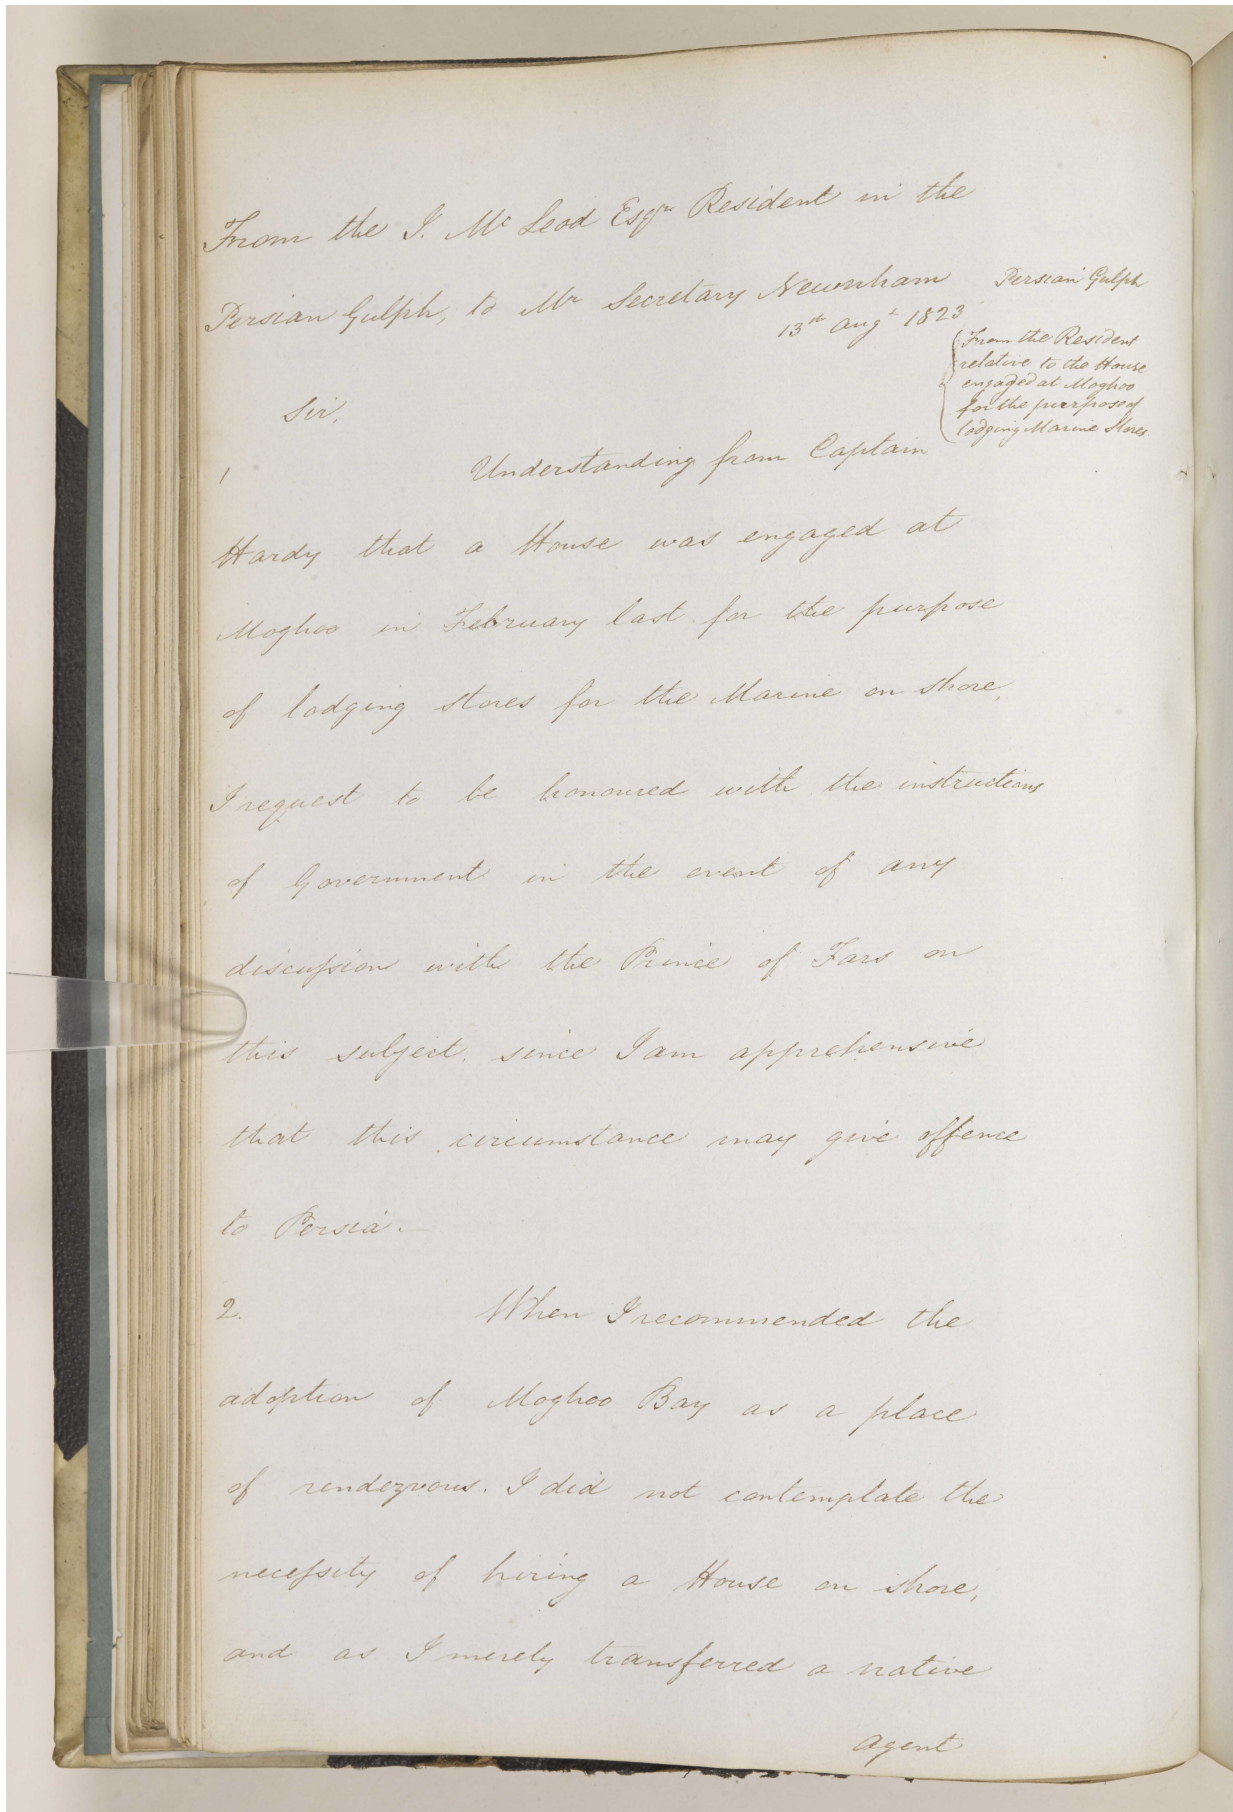 From the J. Mc Leod Esqre Resident in the
Persian Gulph, to Mr Secretary Newnham
13th Augt 1823
Persian Gulph
From the Resident
relative to the House
engaged at Moghoo
for the purpose of
lodging Marine Stores.
Sir,
1 Understanding from Captain
Hardy that a House was engaged at
Moghoo in February last for the purpose
of lodging stores for the Marine on shore,
I request to be honoured with the instructions
of Government in the event of any
discussion with the Prince of Fars on
this subject, since I am apprehensive
that this circumstance may give offence
to Persia.
2. When I recommended the
adoption of Moghoo Bay as a place
of rendezvous. I did not contemplate the
necessity of hiring a House on shore,
and as I merely transferred a native
Agent